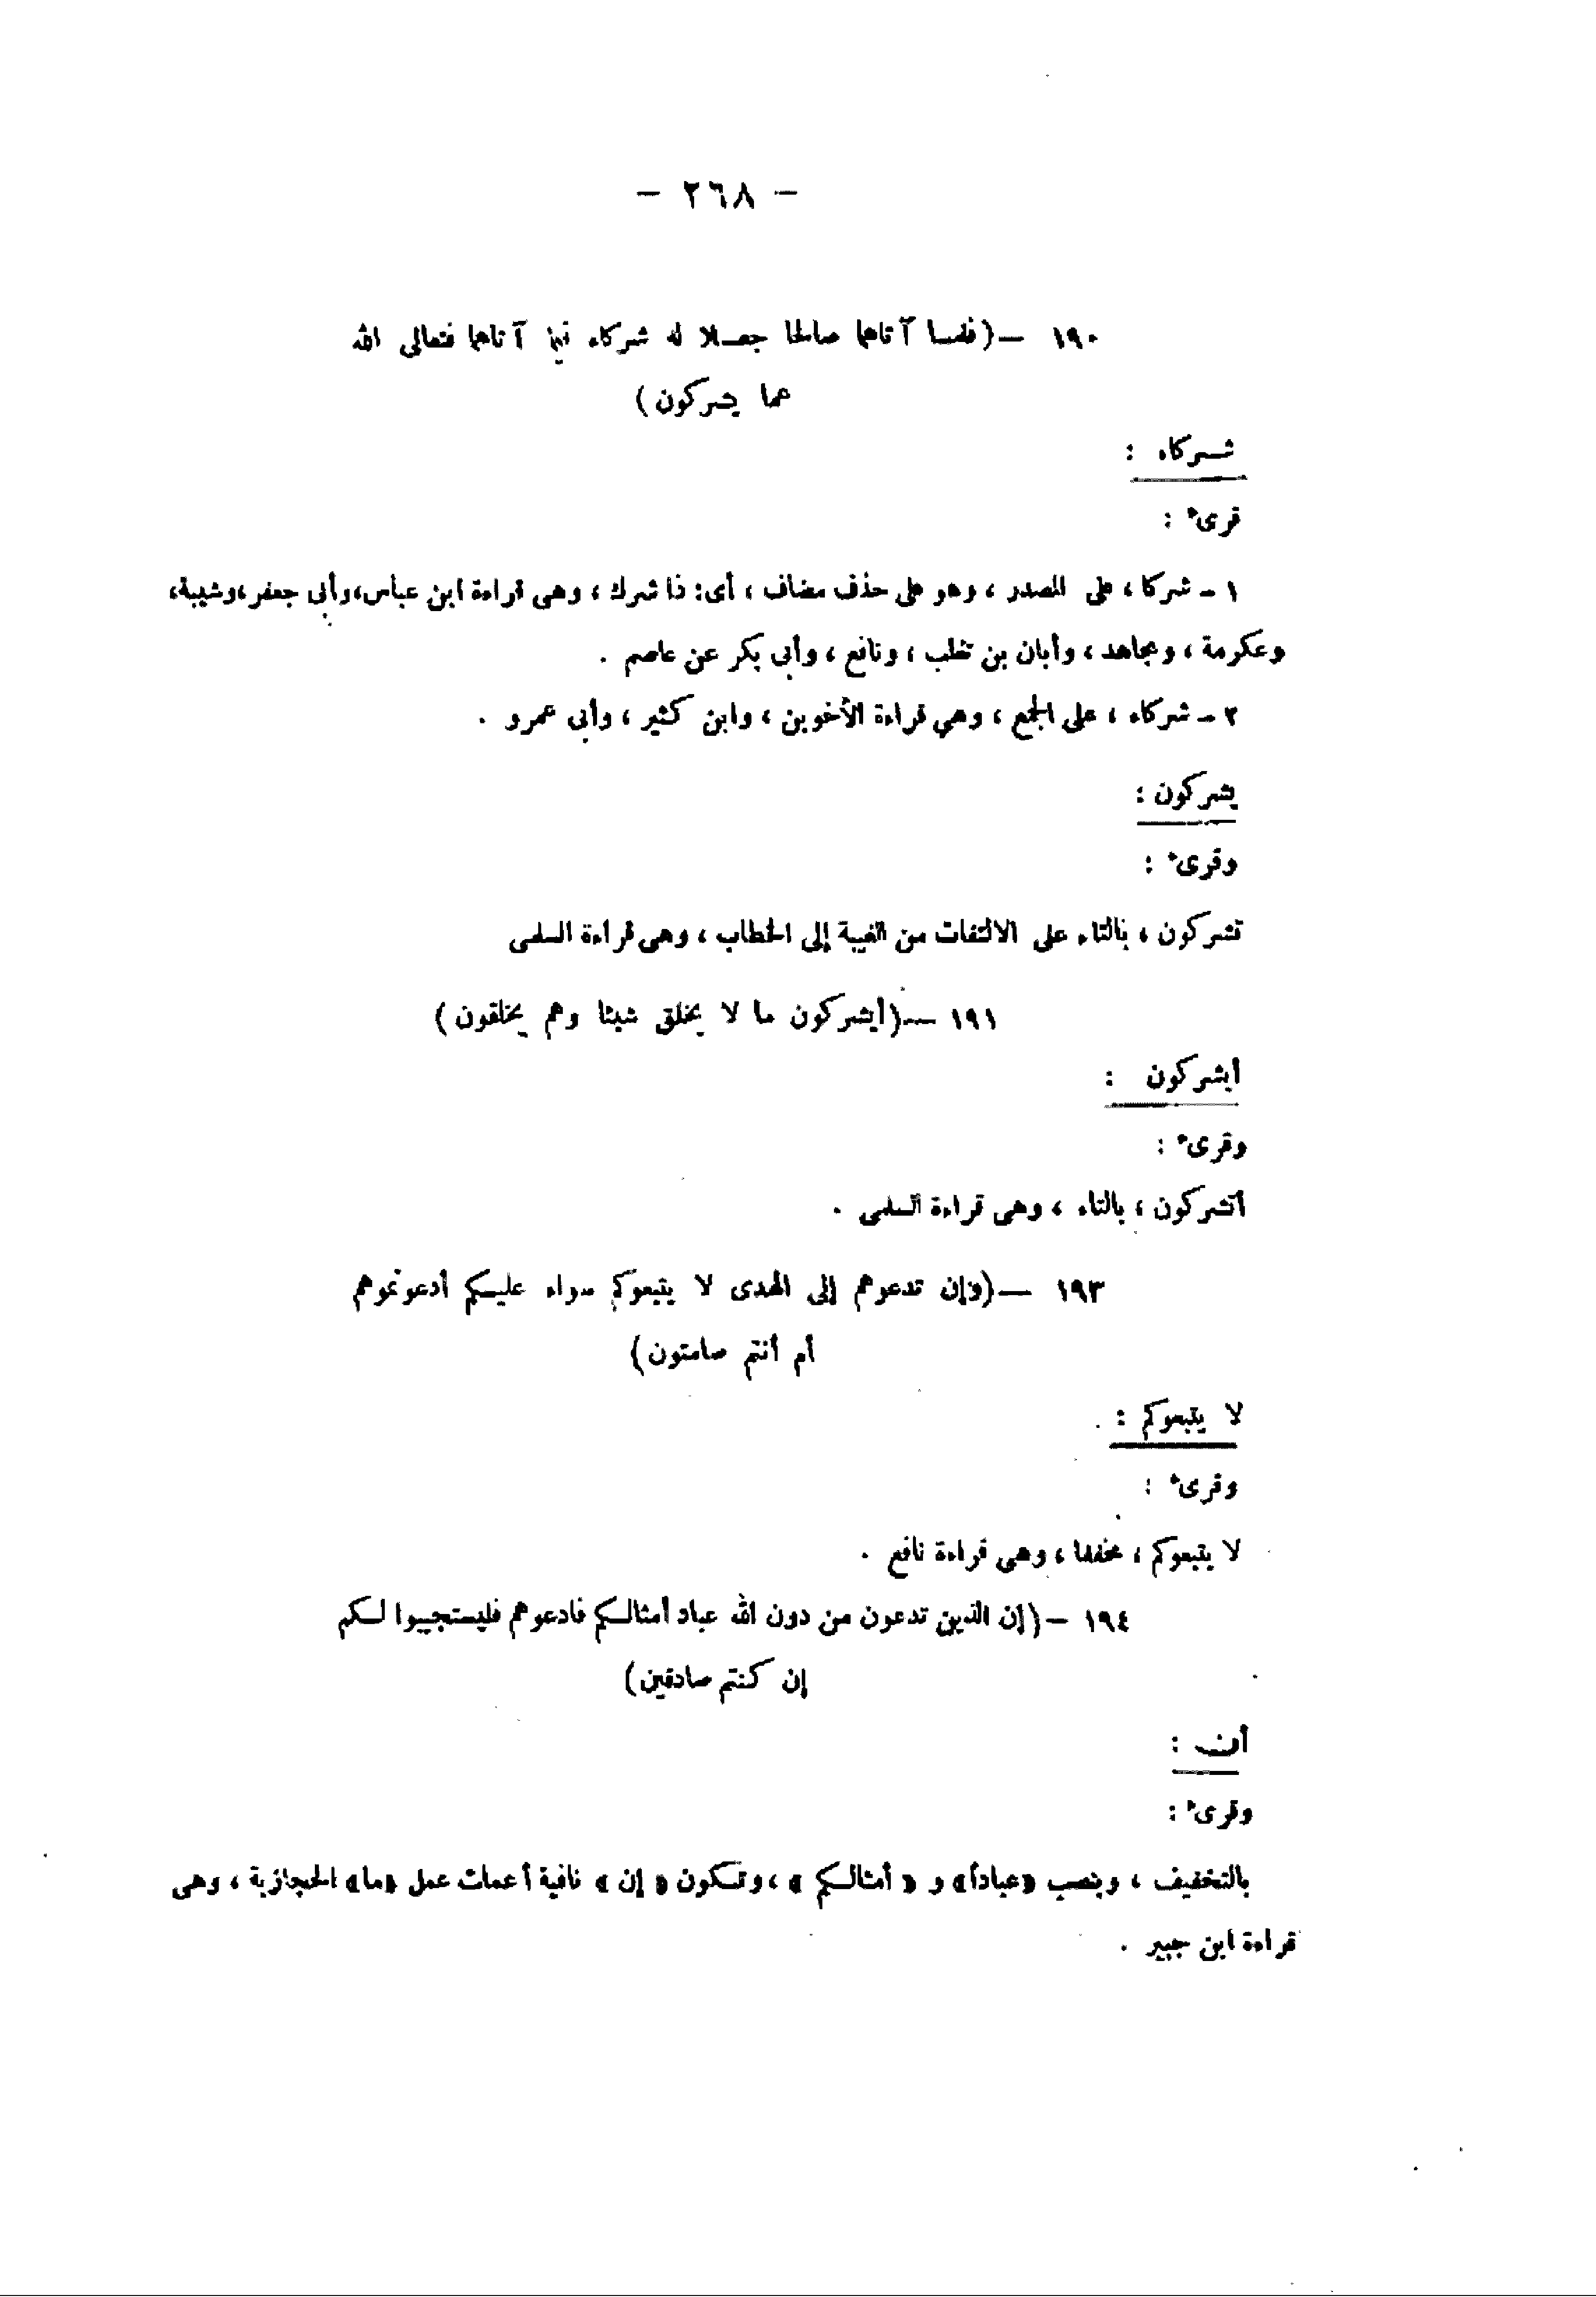 - ٢٦٨ -
١٩٠ - (فلما آتاهما صالحا جعلا له شركاء فيما آتاهما فتعالى الله
عما يشركون)
شركاء :
قرىء :
١ - شركا ، على المصدر ، وهو على حذف مضاف ، أى: ذا شرك ، وهى قراءة ابن عباس، وأبى جعفر، وشيبة،
وعكرمة ، ومجاهد ، وأبان بن تغلب ، ونافع ، وأبى بكر عن عاصم .
٢ - شركاء ، على الجمع ، وهي قراءة الأخوين ، وابن كثير ، وأبى عمرو .
يشركون :
وقرىء :
تشركون ، بالتاء على الالتفات من الغيبة إلى الخطاب ، وهى قراءة السلمى
١٩١ - (أيشركون ما لا يخلق شيئا وهم يخلقون)
أيشركون :
وقرىء :
أتشركون ، بالتاء ، وهى قراءة السلمى .
١٩٣ - (وإن تدعوهم إلى الهدى لا يتبعوكم سواء عليكم أدعوتموهم
أم أنتم صامتون)
لا يتبعوكم :
وقرىء :
لا يتبعوكم ، مخففا ، وهى قراءة نافع .
١٩٤ - (إن الذين تدعون من دون الله عباد أمثالكم فادعوهم فليستجيبوا لكم
إن كنتم صادقين)
أن :
وقرىء :
بالتخفيف ، وبنصب «عبادا» و « أمثالكم » ، وتكون « إن » نافية أعملت عمل «ما» الحجازية ، وهى
قراءة ابن جبير .